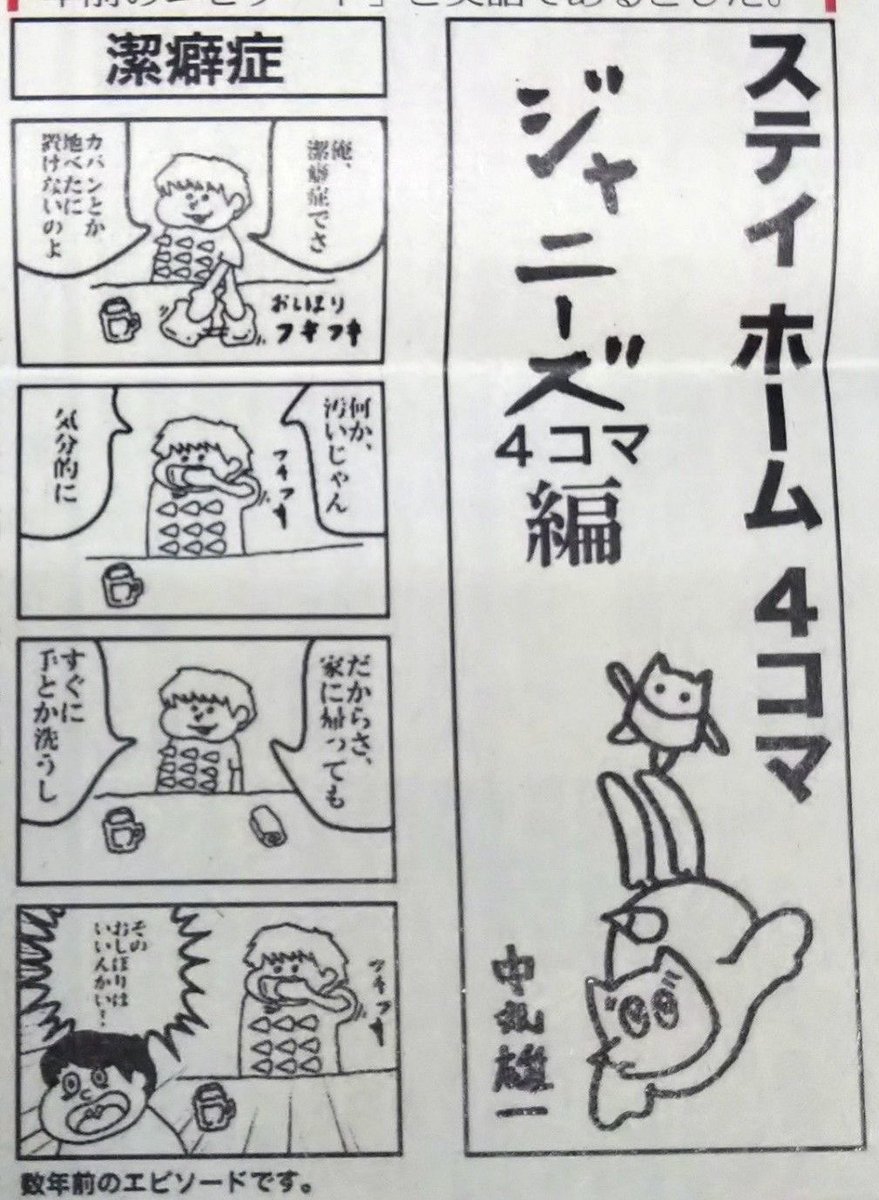 年前のエピソード」と笑話であるとした。
スティ ホーム 4コマ
ジャニーズ
4コマ
編
中丸雄一
潔癖症
俺、
潔癖症でさ
カバンとか
地べたに
置けないのよ
おしぼり
フキフキ
何か、
汚いじゃん
気分的に
フキフキ
だからさ、
家に帰っても
すぐに
手とか洗うし
フキフキ
その
おしぼりは
いいんかい!
数年前のエピソードです。